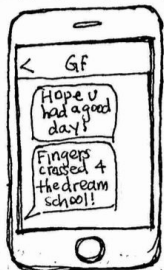 < GF
Hope u
had a good
day!
Fingers
crased 4
the dream
school!!